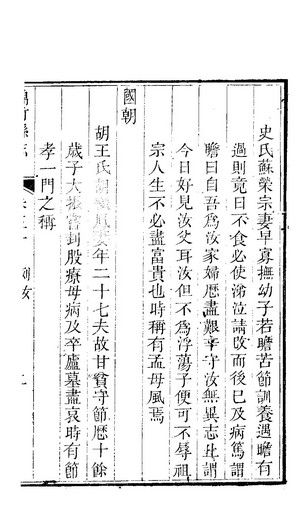 史氏蘇榮宗妻早寡撫幼子若瞻苦節訓養遇瞻有
過則竟日不食必使涕泣請改而後已及病篤謂
瞻曰自吾為汝家婦歷盡艱辛守汝無異志此謂
今日好見汝父耳汝但不為浮蕩子便可不辱祖
宗人生不必盡富貴也時稱有孟母風焉
國朝
胡王氏胡 妻年二十七夫故甘貧守節歷十餘
歲子大振嘗刲股療母病及卒廬墓盡哀時有節
孝一門之稱